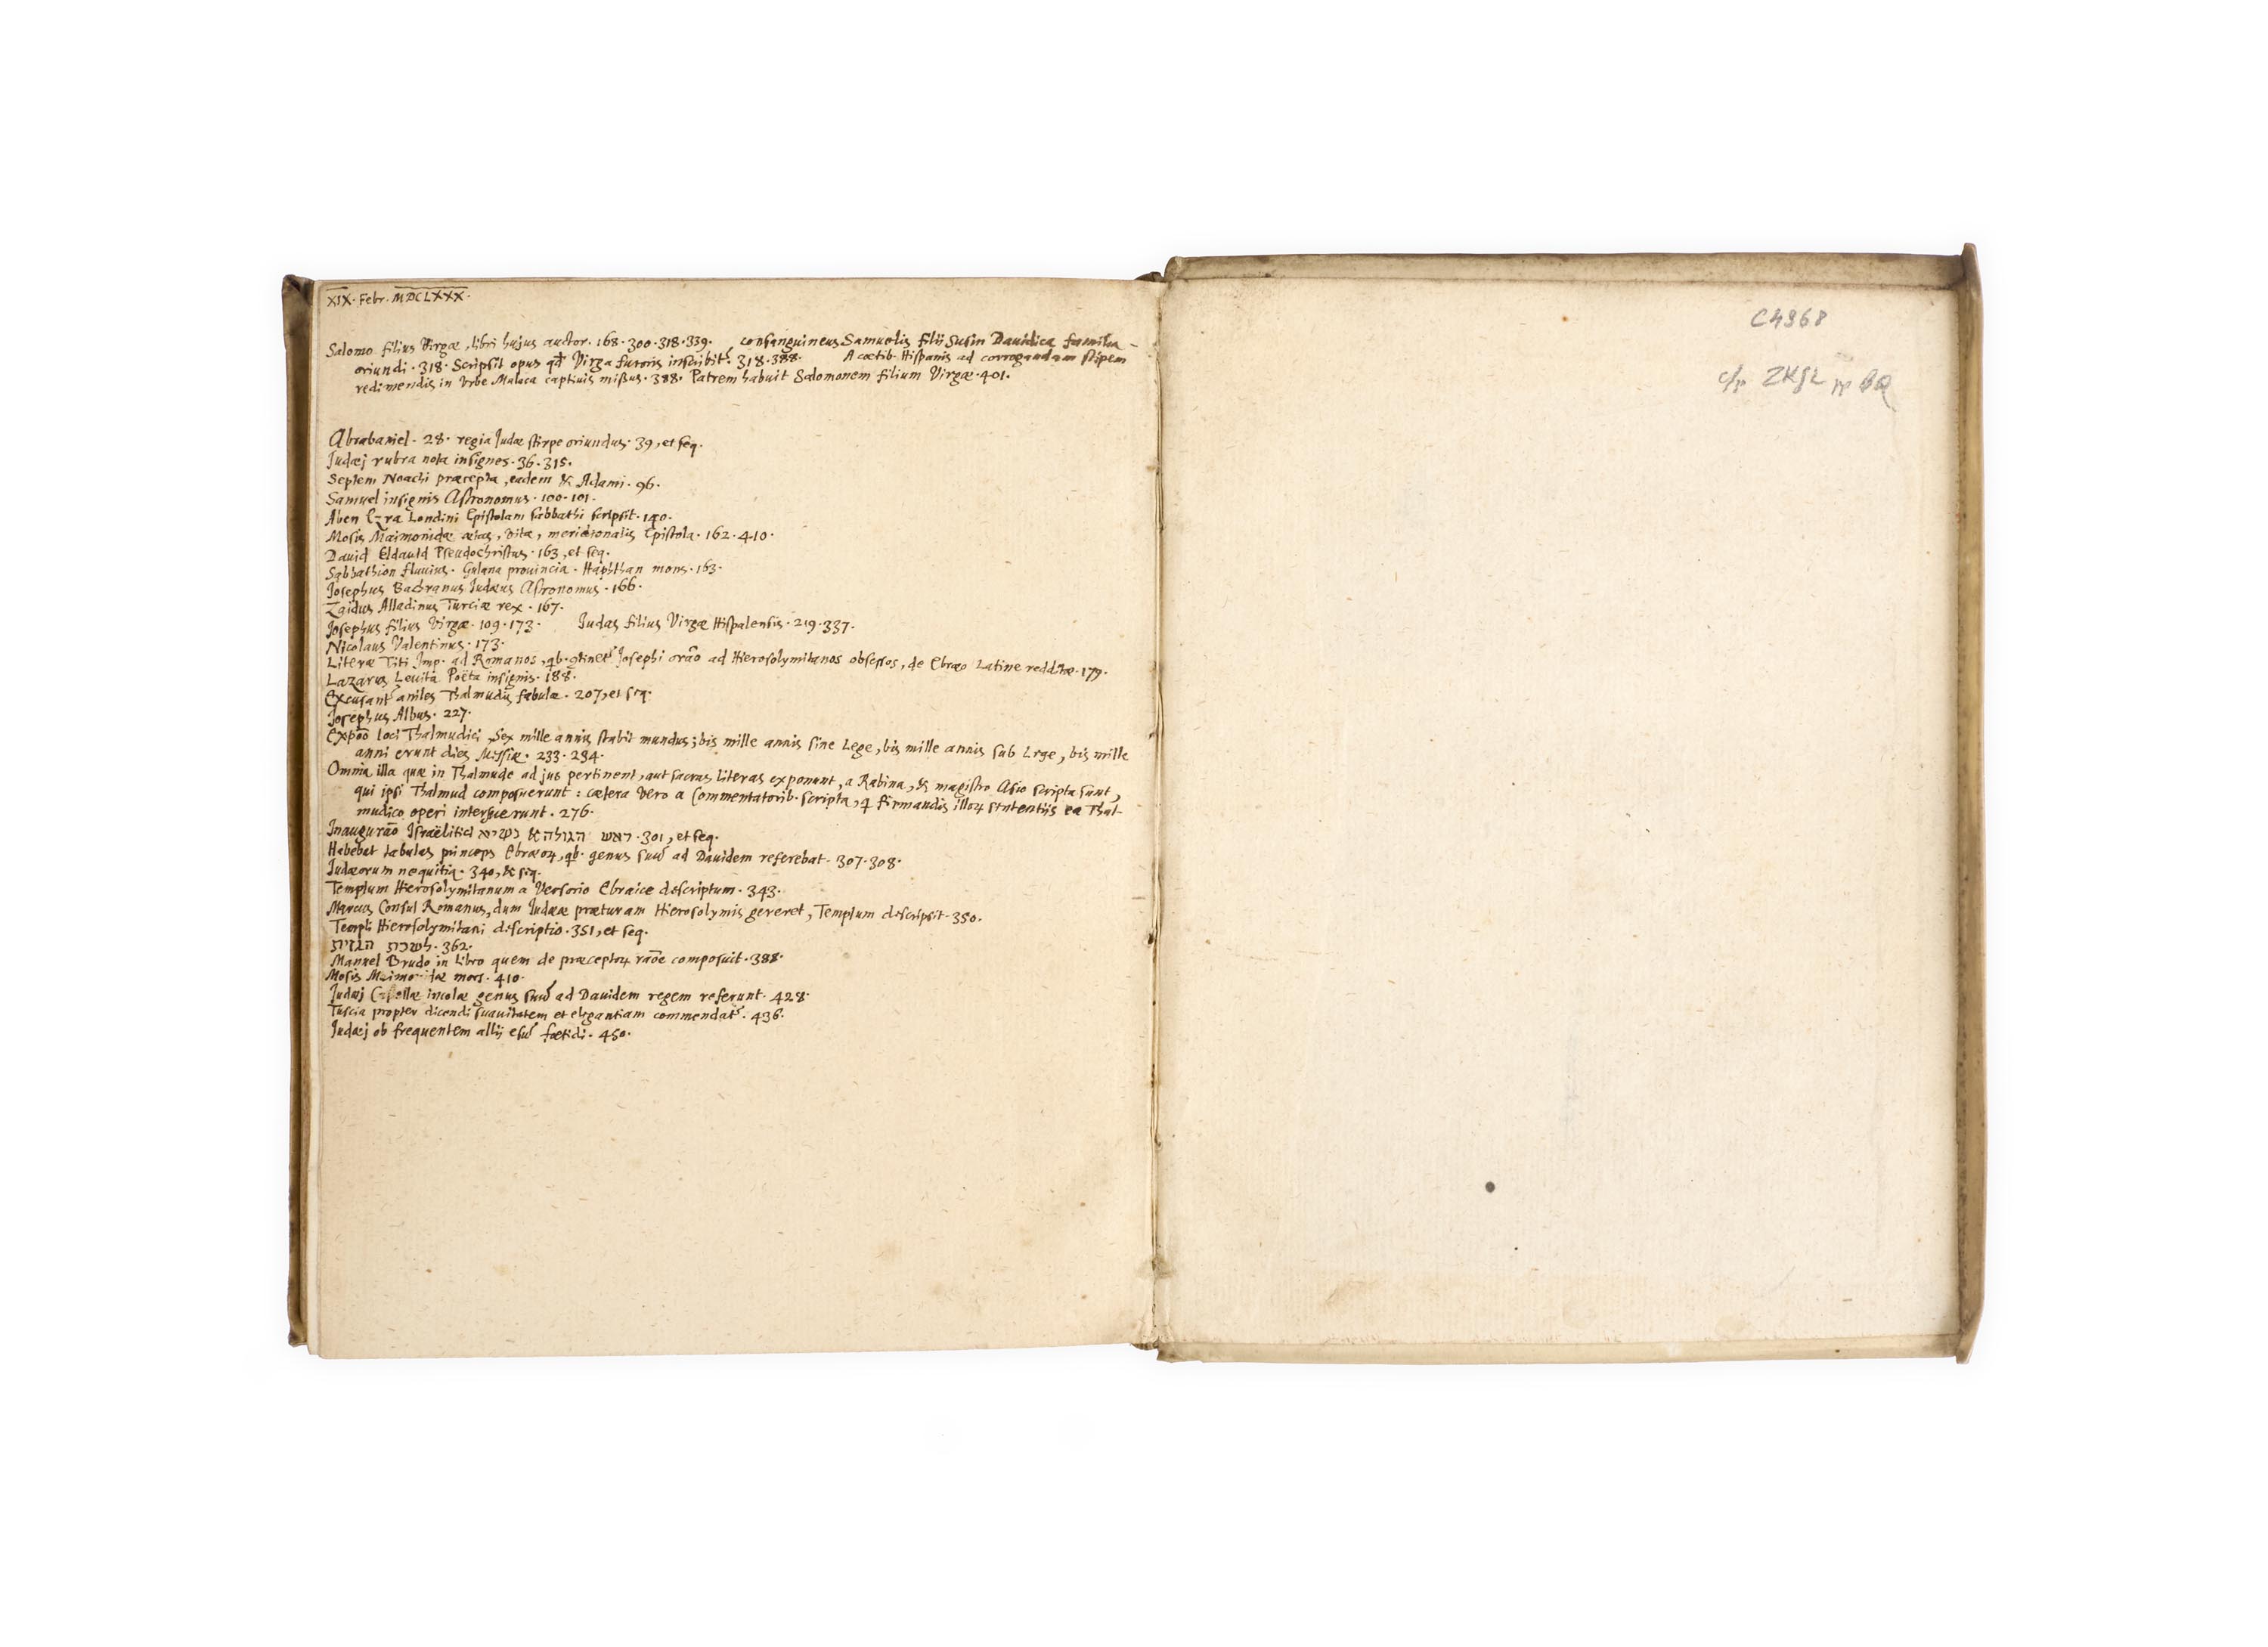 XIX. Febr. MDCLXXX.
Salomo filius Virgæ, libri hujus auctor. 168. 300. 318. 339. consanguineus Samuelis filii Susin Dauidica familia
oriundi. 318. Scripsit opus qđ Virga furoris inscribit᷒. 318. 388. A cœtib. Hispanis ad corrogandam stipem
redimendis in Vrbe Malaca captiuis mißus. 388. Patrem habuit Salomonem filium Virgæ. 401.
Abrabaniel. 28. regia Judæ stirpe oriundus. 39, et seq.
Judæj rubra nota insignes. 36. 315.
Septem Noachi præcepta, eadem & Adami. 96.
Samuel insignis Astronomus. 100. 101.
Aben Ezra Londini Epistolam sabbathi scripsit. 140.
Mosis Maimonidæ ætas, vita, meridionalis Epistola. 162. 410.
Dauid Eldauid Pseudochristus. 163, et seq.
Sabbathion fluuius. Gulana prouincia. Haphthan mons. 163.
Josephus Bachranus Judæus Astronomus. 166.
Zaidus Alladinus Turciæ rex. 167.
Josephus filius Virgæ. 109. 173. Judas filius Virgæ Hispalensis. 219. 337.
Nicolaus Valentinus. 173.
Literæ Titi Imp. ad Romanos, qb. ꝯtinet᷒ Josephi orāo ad Hierosolymitanos obsessos, de Ebræo Latine redditæ. 179.
Lazarus Leuita Poëta insignis. 188.
Excusant᷒ aniles Thalmudis fabulæ. 207, et seq.
Josephus Albus. 227.
Expōo loci Thalmudici, Sex mille annis stabit mundus; bis mille annis sine Lege, bis mille annis sub Lege, bis mille
anni erunt dies Messiæ. 233. 234.
Omnia illa quæ in Thalmude ad jus pertinent, aut sacras literas exponunt, a Rabina, & magistro Asio scripta sunt,
qui ipsi Thalmud composuerunt: cætera vero a Commentatorib. scripta, q firmandis illoꝝ sententiis ea Thal-
mudico operi interseruerunt. 276.
Inaugurāo Israëlitici נשיא & ראש הגולה. 301, et seq.
Habebat tabulas princeps Ebræoꝝ, qb. genus suū ad Dauidem referebat. 307. 308.
Judæorum nequitia. 340, & seq.
Templum Hierosolymitanum a Versorio Ebraice descriptum. 343.
Marcus Consul Romanus, dum Judææ præturam Hierosolymis gereret, Templum descripsit. 350.
Templi Hierosolymitani descriptio. 351, et seq.
לשכת הגזית. 362.
Manuel Brudo in libro quem de præceptoꝝ rāōe composuit. 388.
Mosis Maimonidæ mors. 410.
Judæj Castellæ incolæ genus suū ad Dauidem regem referunt. 428.
Tuscia propter dicendi suauitatem et elegantiam commendat᷒. 436.
Judæj ob frequentem allij esū fœtidi. 450.
C4968